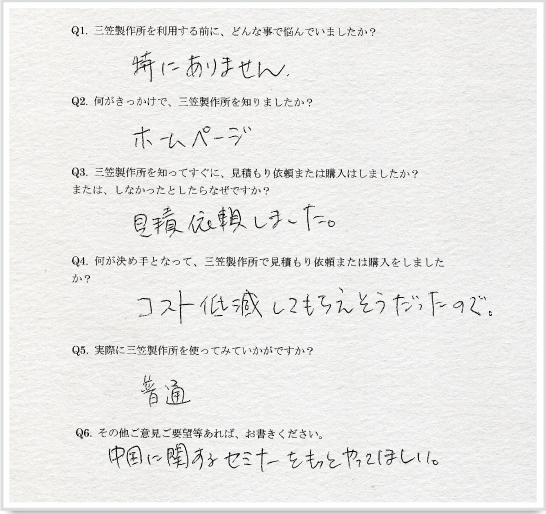 Q1. 三笠製作所を利用する前に、どんな事で悩んでいましたか？
特にありません.
Q2. 何がきっかけで、三笠製作所を知りましたか？
ホームページ
Q3. 三笠製作所を知ってすぐに、見積もり依頼または購入はしましたか？
または、しなかったとしたらなぜですか？
見積依頼しました。
Q4. 何が決め手となって、三笠製作所で見積もり依頼または購入をしました
か？
コスト低減してもらえそうだったので。
Q5. 実際に三笠製作所を使ってみていかがですか？
普通
Q6. その他ご意見ご要望等あれば、お書きください。
中国に関するセミナーをもっとやってほしい。